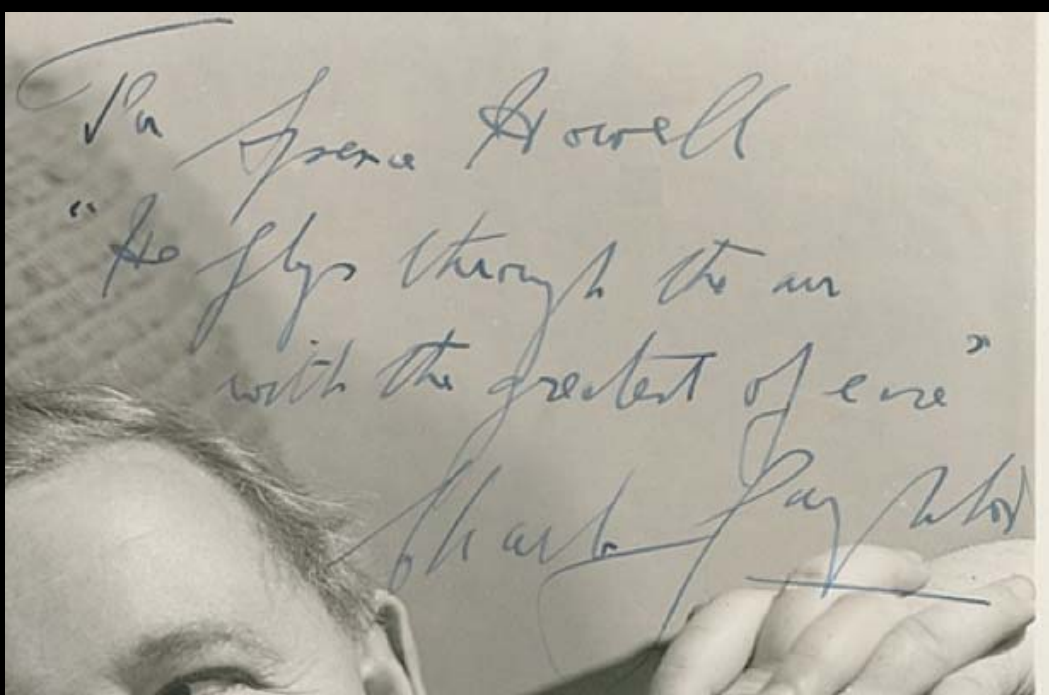 For Spence Howell
"He flys through the air
with the greatest of ease"
Charles Laughton